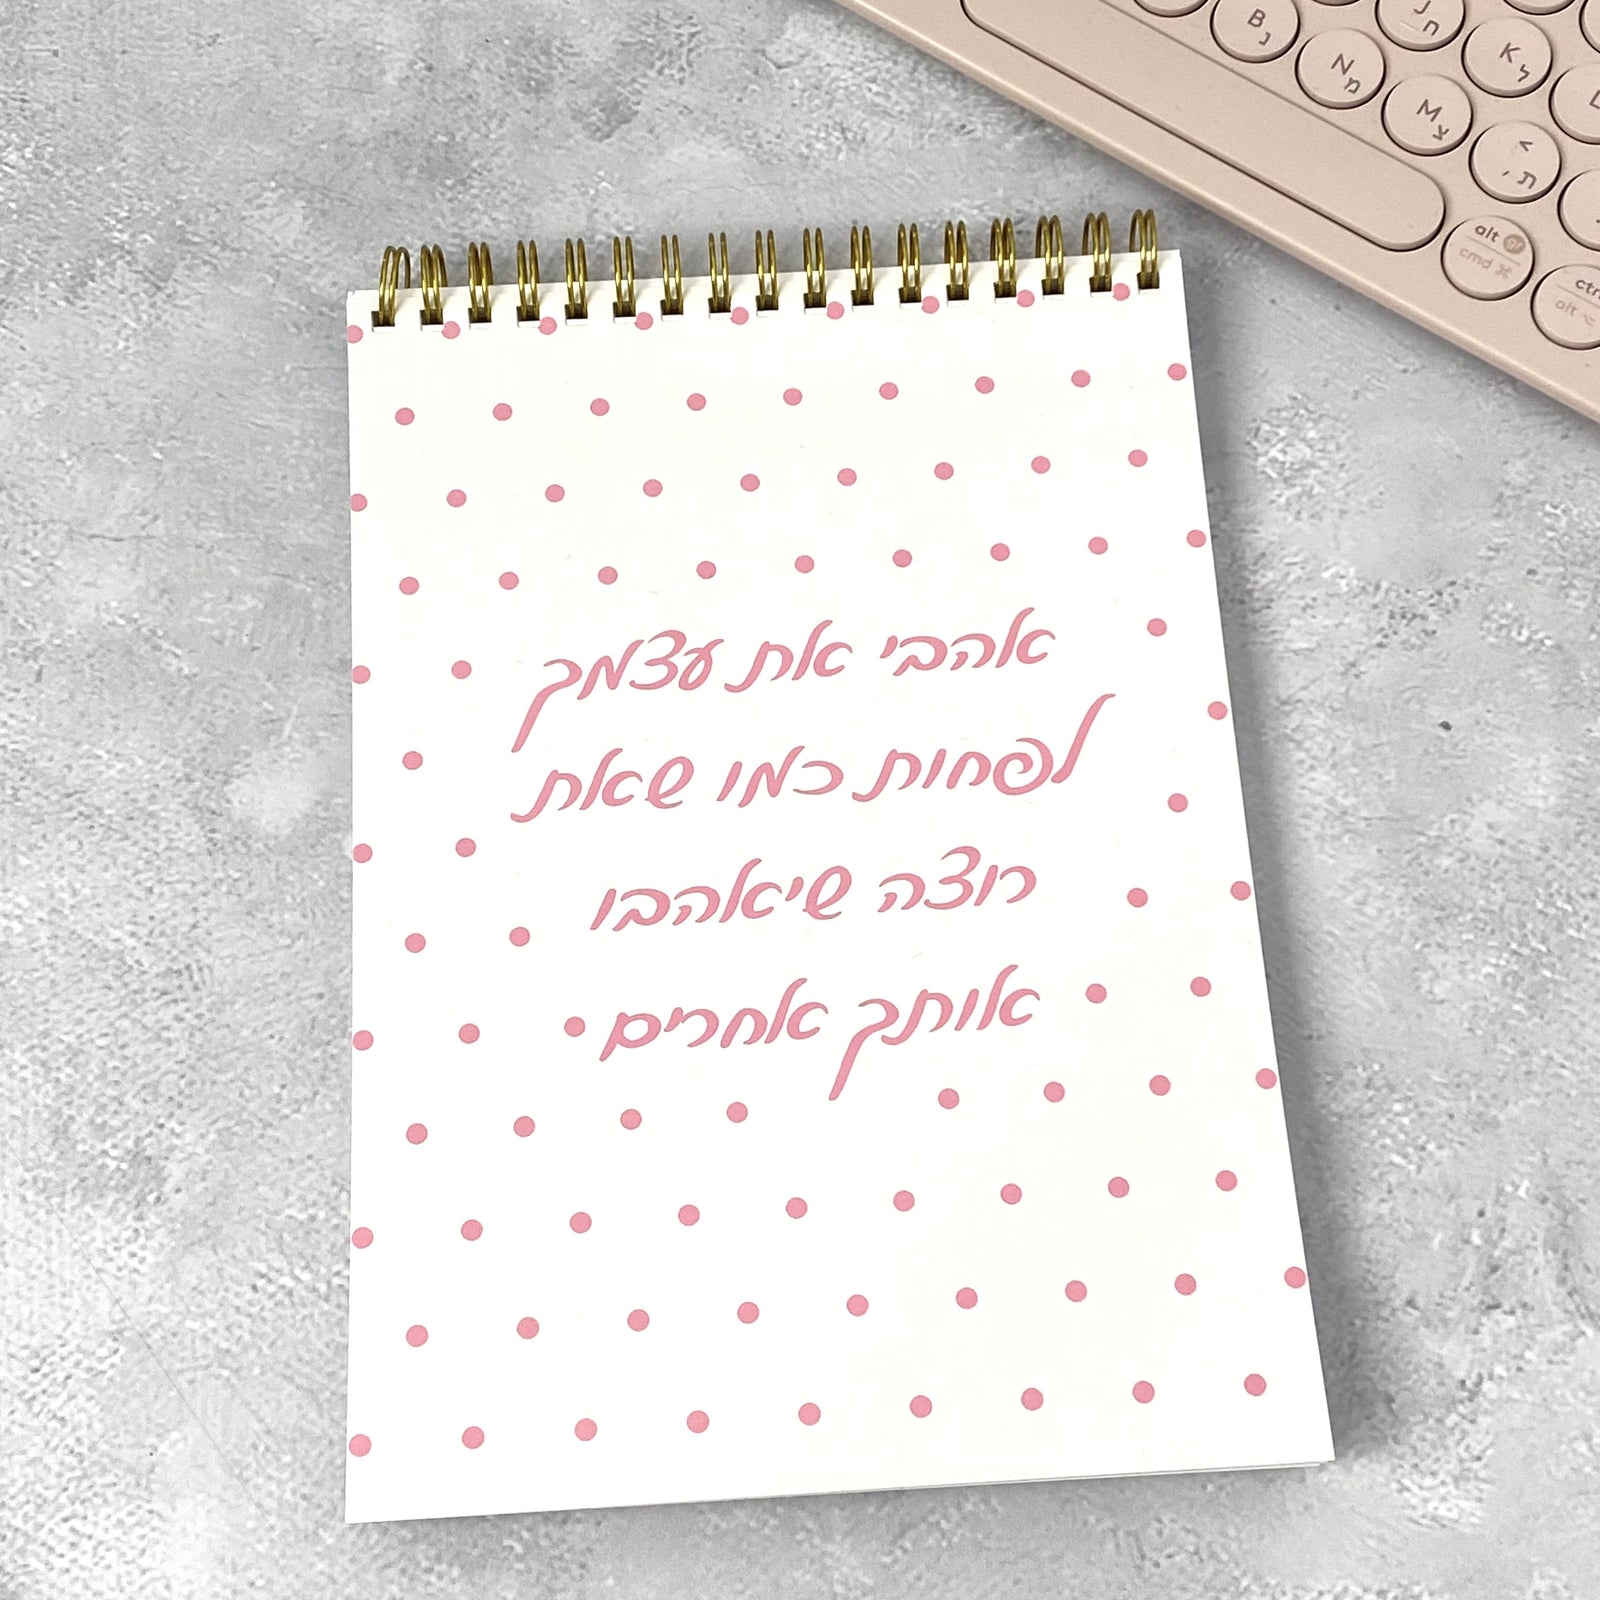 אהבי את עצמך
לפחות כמו שאת
רוצה שיאהבו
אותך אחרים
B נ
N מ
M צ
J ח
K ל
< , ת
alt gr
cmd ⌘
alt ⌥